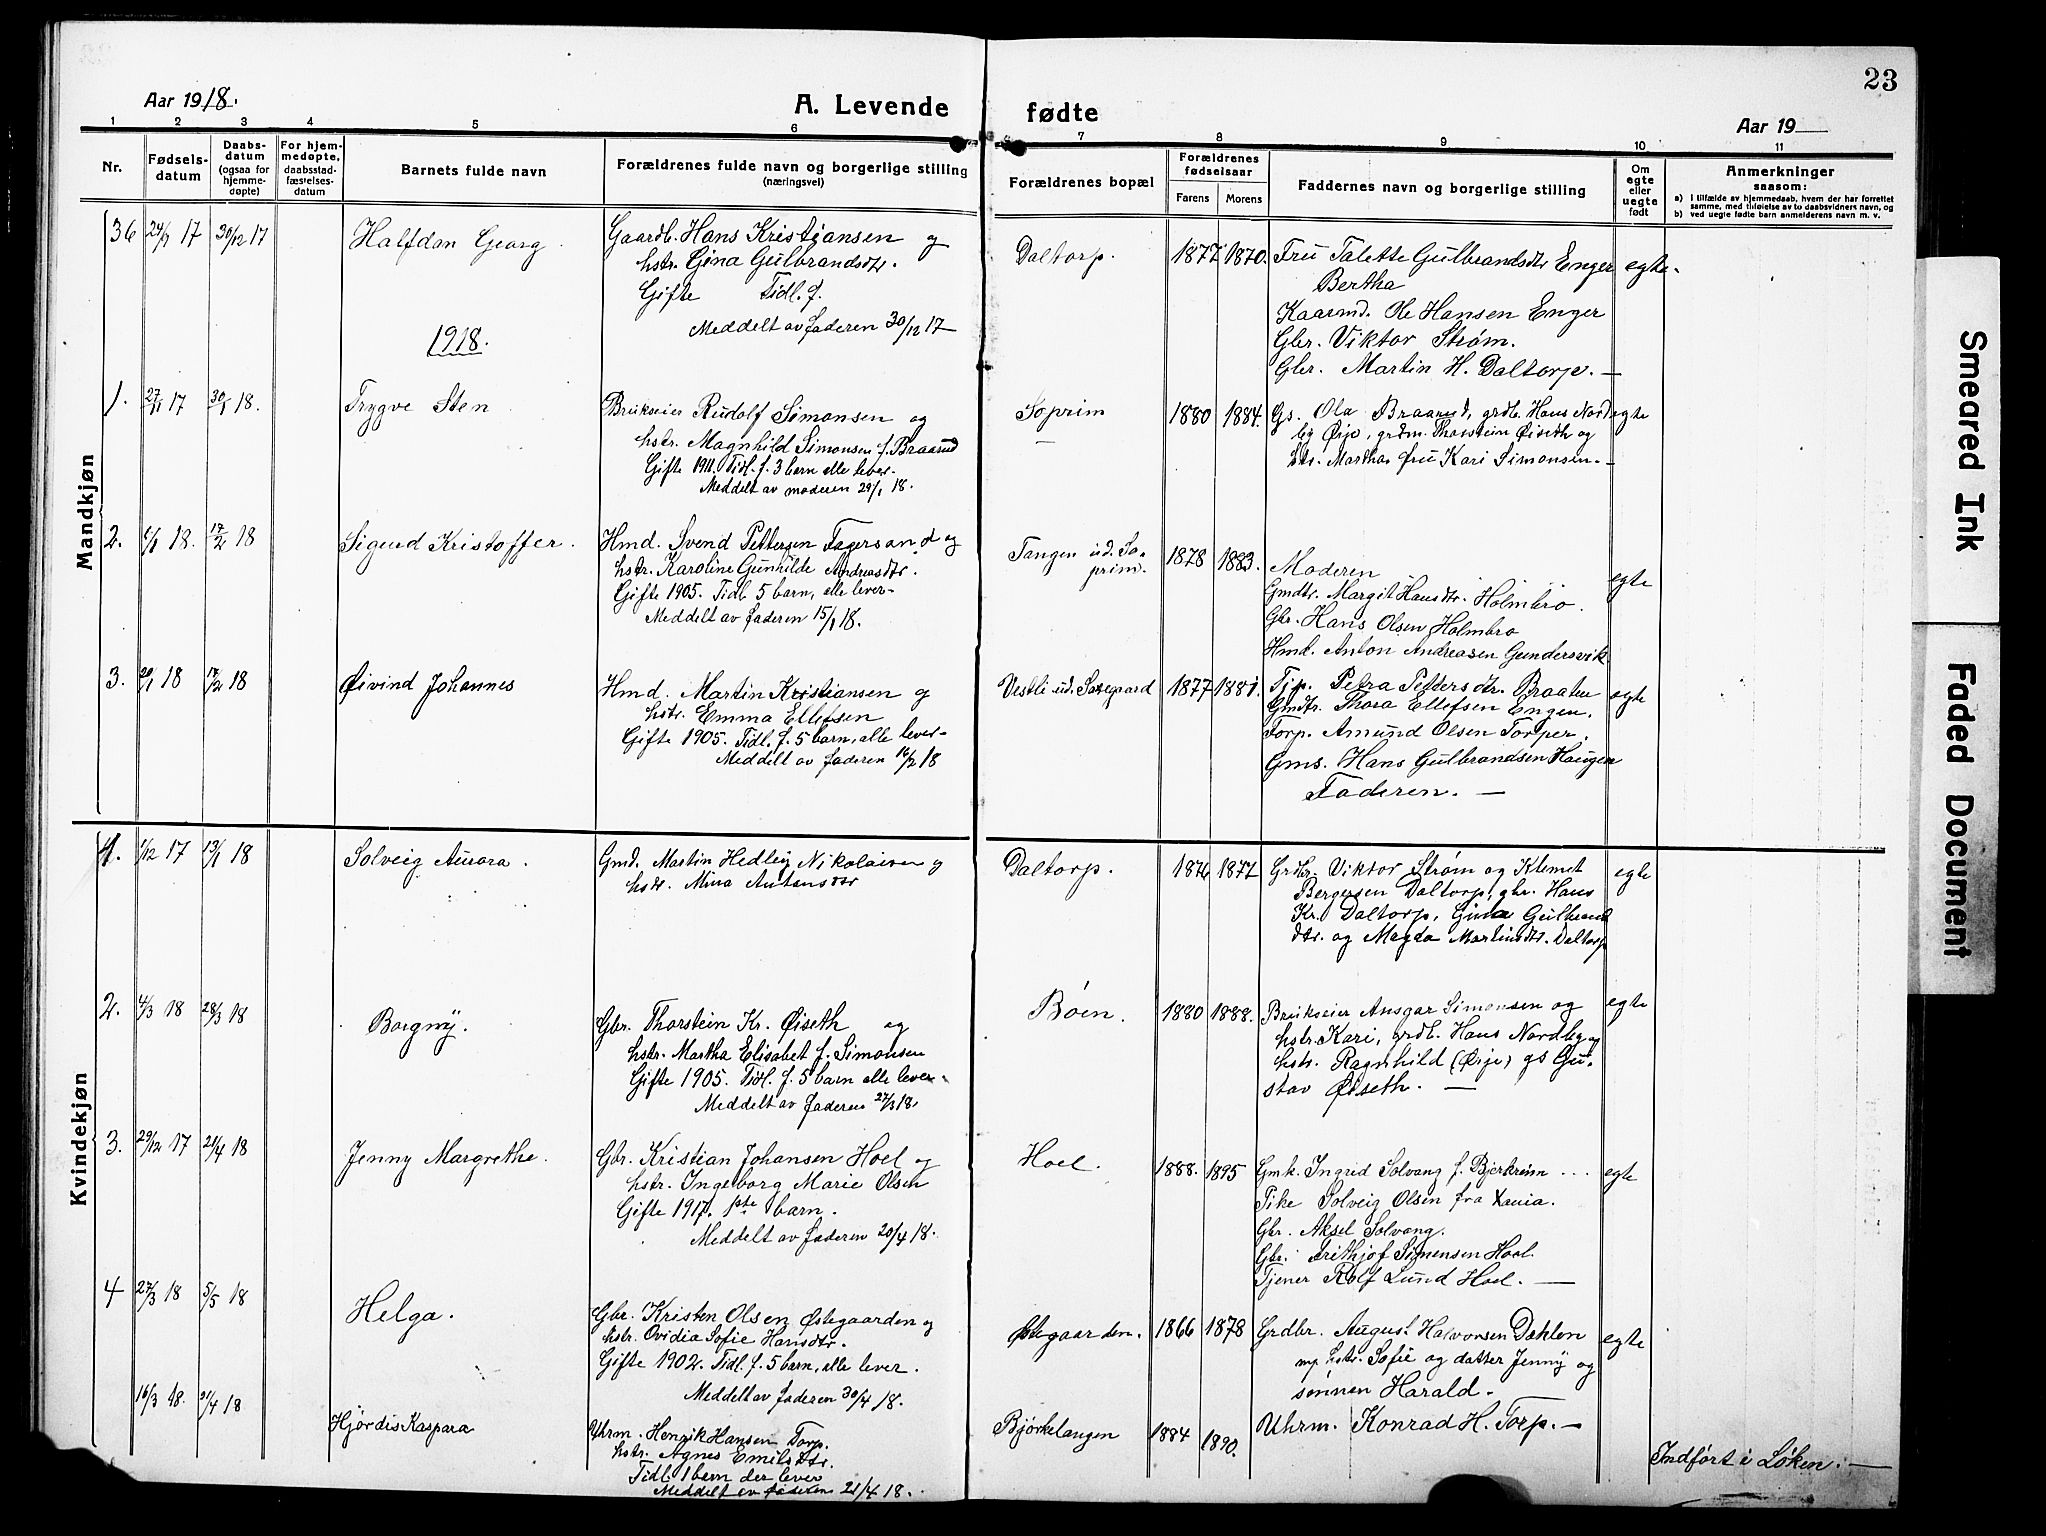 23
Aar 1918.
A. Levende fødte
Aar 19
1 2 3 4 5 6 7 8 9 10 11
Nr.
Fødselsdatum
Daabsdatum (ogsaa for hjemmedøpte)
For hjemmedøpte, daabsstadfæstelsesdatum
Barnets fulde navn
Forældrenes fulde navn og borgerlige stilling
(næringsvei)
Forældrenes bopæl
Forældrenes fødselsaar
Farens Morens
Faddernes navn og borgerlige stilling
Om egte eller uegte født
Anmerkninger
saasom:
a) i tilfælde av hjemmedaab, hvem der har forrettet
samme, med tilføielse av to daabsvidners navn, og
b) ved uegte fødte barn anmelderens navn m. v.
Mandkjøn
36 30/12 17 Halfdan Georg
Gaardb. Hans Kristjansen og
hstr. Gina Gulbrandsdtr.
Gifte Tidl. f.
Meddelt av faderen 30/12 17
Daltorp. 1877 1870.
Fru Talette Gulbrandsdtr Enger
Bertha
Kaarmd. Ole Hansen Enger
Gbr. Viktor Strøm.
Gbr. Martin H. Daltorp. —
egte.
1918.
1. 27/11 17 30/1 18. Trygve Sten
Brukseier Rudolf Simonsen og
hstr. Magnhild Simonsen f. Braarud
Gifte 1911. Tidl. f. 3 barn alle lever.
Meddelt av moderen 29/1 18.
Soprim 1880 1884.
Gs. Ola Braarud, grdb. Hans Nord
big Ørje, grdm. Thorstein Øiseth og
hstr. Martha, fru Kari Simonsen. —
egte
2. 6/1 18. 17/2 18 Sigurd Kristoffer.
Hmd. Svend Pettersen Fagersand og
hstr. Karoline Gunhilde Andreasdtr.
Gifte 1905. Tidl. 5 barn, alle lever.
Meddelt av faderen 15/1 18.
Tangen ud. So.
prim. 1878 1883.
Moderen
Gmdtr. Margit Hansdtr. Holmbro.
Gbr. Hans Olsen Holmbro
Hmd. Anton Andreasen Gundersvik
egte
3. 20/1 18 17/2 18 Øivind Johannes
Hmd. Martin Kristiansen og
hstr. Emma Ellefsen
Gifte 1905. Tidl. f. 5 barn, alle lever.
Meddelt av faderen 16/2 18
Vestli ud. Sogaard 1877 1881.
Tjp. Petra Pettersdtr. Braaten
Gmdtr. Thora Ellefsen Engen.
Torp. Amund Olsen Torper.
Gms. Hans Gulbrandsen Haugen
Faderen. —
egte
Kvindekjøn
1. 1/12 17 13/1 18 Solveig Aurora.
Gmd. Martin Hedley Nikolaisen og
hstr. Mina Antonsdtr
Daltorp. 1876 1877
Grdbr. Viktor Strøm og Klemet
Bergersen Daltorp, gbr. Hans
Kr. Daltorp, Gina Gulbrand
dtr. og Magda Martinsdtr. Daltorp
egte
2. 4/3 18 28/3 18 Borgny.
Gbr. Thorstein Kr. Øiseth og
hstr. Martha Elisabet f. Simonsen
Gifte 1905. Tidl. f. 5 barn alle lever.
Meddelt av faderen 27/3 18.
Bøen. 1880 1888.
Brukseier Ansgar Simonsen og
hstr. Kari, grdb. Hans Nordbyg og
hstr. Ragnhild (Ørje) gs Gu-
stav Øiseth. —
egte
3. 29/12 17 21/4 18 Jenny Margrethe.
Gbr. Kristian Johansen Hoel og
hstr. Ingeborg Marie Olsen
Gifte 1917. 1ste barn.
Meddelt av faderen 20/4 18.
Hoel. 1888. 1895
Gmk. Ingrid Solvang f. Bjerkreim
Pike Solveig Olsen fra Xania.
Gbr. Aksel Solvang.
Gbr. Frithjof Simensen Hoel.
Tjener Rolf Lund Hoel. —
egte
4 27/3 18 5/5 18 Helga.
Gbr. Kristen Olsen Østegaarden og
hstr. Ovidia Sofie Hansdtr.
Gifte 1902. Tidl. f. 5 barn, alle lever.
Meddelt av faderen 30/4 18.
Østegaarden. 1866 1878
Grdbr. August Halvorsen Dæhlen
m/ hstr. Sofie og datter Jenny og
sønnen Harald.
egte
16/3 18. 21/4 18 Hjørdis Kaspara
Uhrm. Henrik Hansen Torp.
hstr. Agnes Emilsdtr.
Tidl. 1 barn der lever
Meddelt av faderen 21/4 18.
Bjørkelangen 1884 1890.
Uhrm. Konrad H. Torp. —
Indført i Løken. —
Smeared Ink
Faded Document